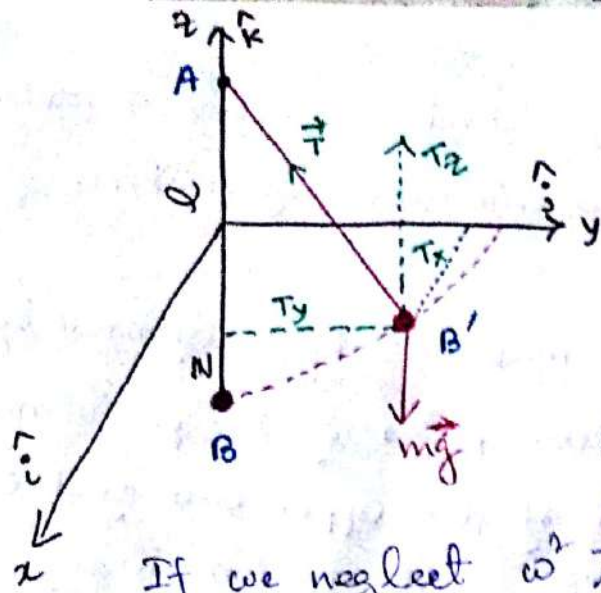 z k̂
A
T⃗
Tz
Q
ĵ
y
Tx
Ty
B'
N
B
mg⃗
î
x
If we neglect ω²